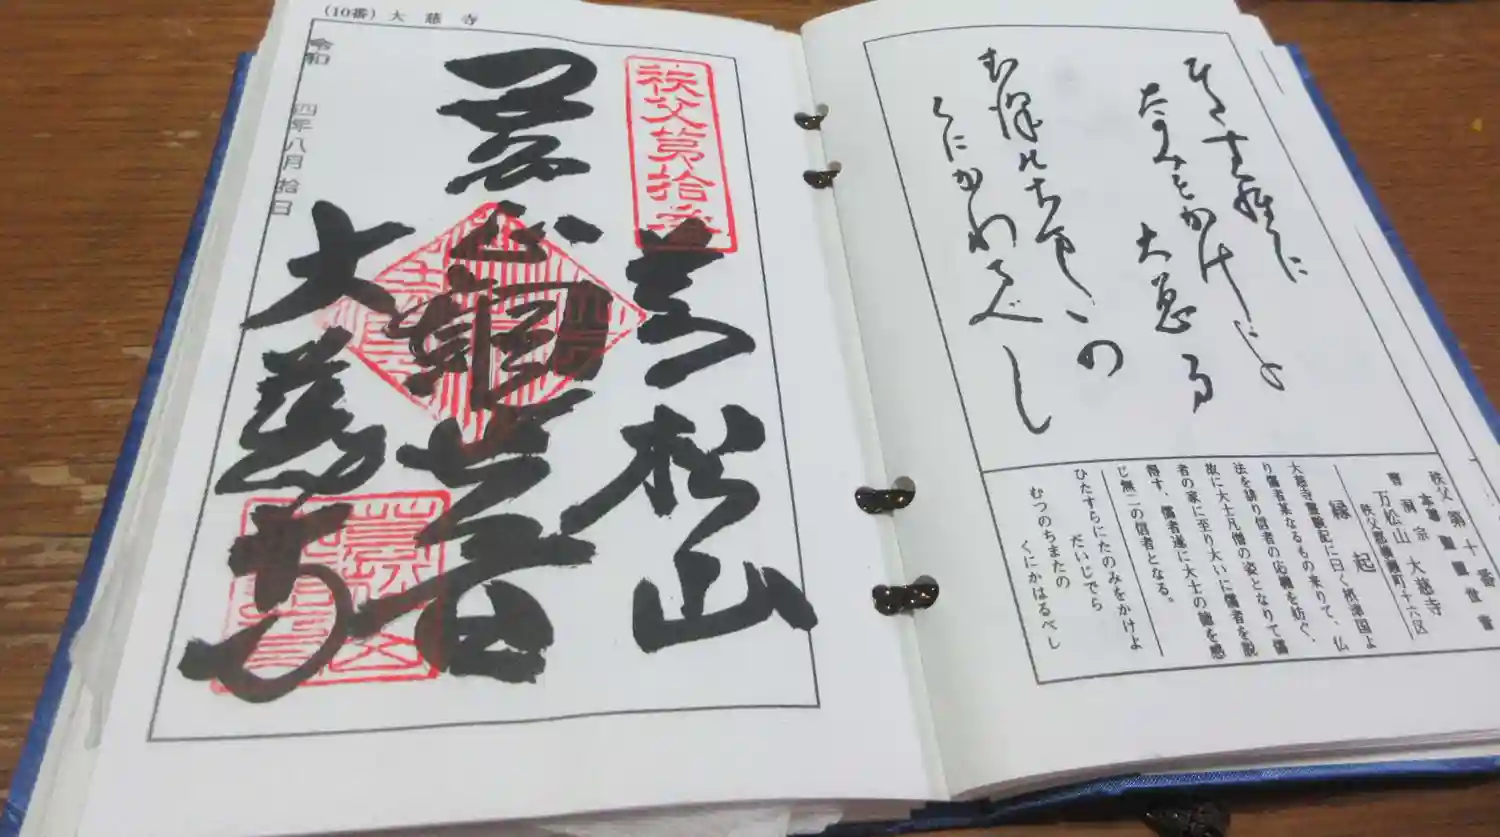 (10番) 大慈寺
令和四年八月拾日
秩父第拾番
万松山
聖観世音
大慈寺
ひたすらに
たのみをかけよ
大慈寺
むつのちまたの
くにかわるべし
秩父第十番
本尊 聖観世音
曹洞宗 大慈寺
万松山
縁起
大慈寺霊験記に曰く摂津国よ
り儒者某なるもの来りて、仏
法を謗り信者の応機を妨ぐ、
故に大士凡僧の姿となりて儒
者の家に至り大いに儒者を説
得す、儒者遂に大士の徳を感
じ無二の信者となる。
ひたすらにたのみをかけよ
だいじでら
むつのちまたの
くにかはるべし